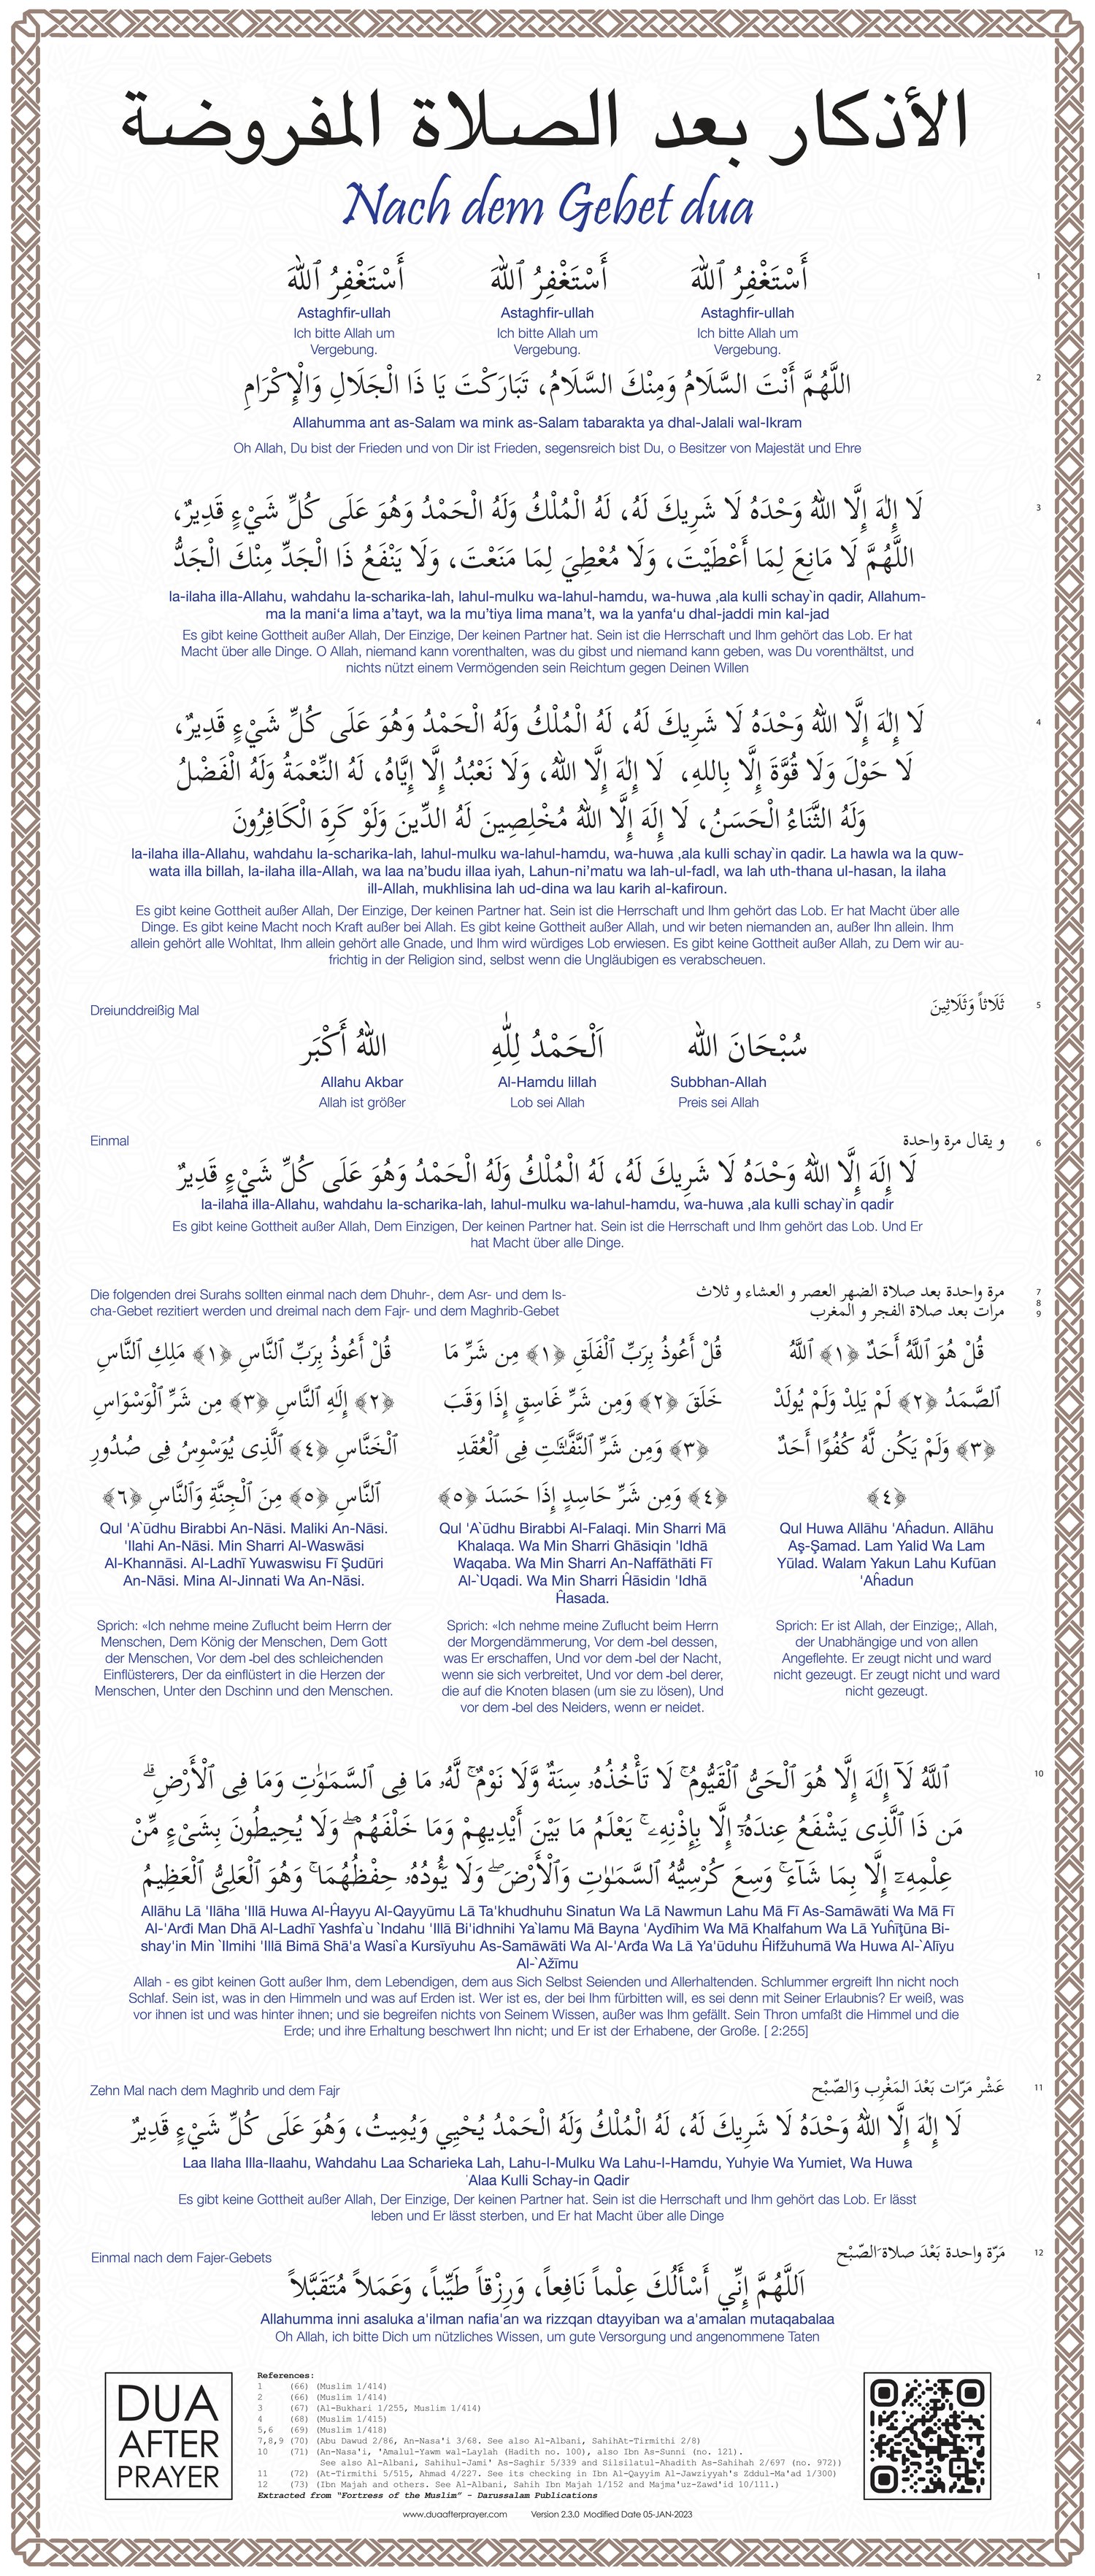 الأذكار بعد الصلاة المفروضة
Nach dem Gebet dua
1
أَسْتَغْفِرُ ٱللَّهَ أَسْتَغْفِرُ ٱللَّهَ أَسْتَغْفِرُ ٱللَّهَ
Astaghfir-ullah Astaghfir-ullah Astaghfir-ullah
Ich bitte Allah um Ich bitte Allah um Ich bitte Allah um
Vergebung. Vergebung. Vergebung.
2
اللَّهُمَّ أَنْتَ السَّلَامُ وَمِنْكَ السَّلَامُ، تَبَارَكْتَ يَا ذَا الْجَلَالِ وَالْإِكْرَامِ
Allahumma ant as-Salam wa mink as-Salam tabarakta ya dhal-Jalali wal-Ikram
Oh Allah, Du bist der Frieden und von Dir ist Frieden, segensreich bist Du, o Besitzer von Majestät und Ehre
3
لَا إِلٰهَ إِلَّا اللهُ وَحْدَهُ لَا شَرِيكَ لَهُ، لَهُ الْمُلْكُ وَلَهُ الْحَمْدُ وَهُوَ عَلَى كُلِّ شَيْءٍ قَدِيرٌ،
اللَّهُمَّ لَا مَانِعَ لِمَا أَعْطَيْتَ، وَلَا مُعْطِيَ لِمَا مَنَعْتَ، وَلَا يَنْفَعُ ذَا الْجَدِّ مِنْكَ الْجَدُّ
la-ilaha illa-Allahu, wahdahu la-scharika-lah, lahul-mulku wa-lahul-hamdu, wa-huwa ‚ala kulli schay`in qadir, Allahum-
ma la mani‘a lima a’tayt, wa la mu’tiya lima mana’t, wa la yanfa‘u dhal-jaddi min kal-jad
Es gibt keine Gottheit außer Allah, Der Einzige, Der keinen Partner hat. Sein ist die Herrschaft und Ihm gehört das Lob. Er hat
Macht über alle Dinge. O Allah, niemand kann vorenthalten, was du gibst und niemand kann geben, was Du vorenthältst, und
nichts nützt einem Vermögenden sein Reichtum gegen Deinen Willen
4
لَا إِلٰهَ إِلَّا اللهُ وَحْدَهُ لَا شَرِيكَ لَهُ، لَهُ الْمُلْكُ وَلَهُ الْحَمْدُ وَهُوَ عَلَى كُلِّ شَيْءٍ قَدِيرٌ،
لَا حَوْلَ وَلَا قُوَّةَ إِلَّا بِاللهِ، لَا إِلٰهَ إِلَّا اللهُ، وَلَا نَعْبُدُ إِلَّا إِيَّاهُ، لَهُ النِّعْمَةُ وَلَهُ الْفَضْلُ
وَلَهُ الثَّنَاءُ الْحَسَنُ، لَا إِلَهَ إِلَّا اللهُ مُخْلِصِينَ لَهُ الدِّينَ وَلَوْ كَرِهَ الْكَافِرُونَ
la-ilaha illa-Allahu, wahdahu la-scharika-lah, lahul-mulku wa-lahul-hamdu, wa-huwa ‚ala kulli schay`in qadir. La hawla wa la quw-
wata illa billah, la-ilaha illa-Allah, wa laa na’budu illaa iyah, Lahun-ni’matu wa lah-ul-fadl, wa lah uth-thana ul-hasan, la ilaha
ill-Allah, mukhlisina lah ud-dina wa lau karih al-kafiroun.
Es gibt keine Gottheit außer Allah, Der Einzige, Der keinen Partner hat. Sein ist die Herrschaft und Ihm gehört das Lob. Er hat Macht über alle
Dinge. Es gibt keine Macht noch Kraft außer bei Allah. Es gibt keine Gottheit außer Allah, und wir beten niemanden an, außer Ihn allein. Ihm
allein gehört alle Wohltat, Ihm allein gehört alle Gnade, und Ihm wird würdiges Lob erwiesen. Es gibt keine Gottheit außer Allah, zu Dem wir au-
frichtig in der Religion sind, selbst wenn die Ungläubigen es verabscheuen.
5
ثَلَاثاً وَثَلَاثِينَ
Dreiunddreißig Mal
سُبْحَانَ الله اَلْحَمْدُ لِلّٰهِ اللهُ أَكْبَر
Allahu Akbar Al-Hamdu lillah Subbhan-Allah
Allah ist größer Lob sei Allah Preis sei Allah
6
و يقال مرة واحدة
Einmal
لَا إِلَهَ إِلَّا اللهُ وَحْدَهُ لَا شَرِيكَ لَهُ، لَهُ الْمُلْكُ وَلَهُ الْحَمْدُ وَهُوَ عَلَى كُلِّ شَيْءٍ قَدِيرٌ
la-ilaha illa-Allahu, wahdahu la-scharika-lah, lahul-mulku wa-lahul-hamdu, wa-huwa ‚ala kulli schay`in qadir
Es gibt keine Gottheit außer Allah, Dem Einzigen, Der keinen Partner hat. Sein ist die Herrschaft und Ihm gehört das Lob. Und Er
hat Macht über alle Dinge.
7
8
9
مرة واحدة بعد صلاة الضهر العصر و العشاء و ثلاث
مرات بعد صلاة الفجر و المغرب
Die folgenden drei Surahs sollten einmal nach dem Dhuhr-, dem Asr- und dem Is-
cha-Gebet rezitiert werden und dreimal nach dem Fajr- und dem Maghrib-Gebet
قُلْ هُوَ ٱللَّهُ أَحَدٌ ﴿١﴾ ٱللَّهُ
ٱلصَّمَدُ ﴿٢﴾ لَمْ يَلِدْ وَلَمْ يُولَدْ
﴿٣﴾ وَلَمْ يَكُن لَّهُ كُفُوًا أَحَدٌ
﴿٤﴾
Qul Huwa Allāhu 'Aĥadun. Allāhu
Aş-Şamad. Lam Yalid Wa Lam
Yūlad. Walam Yakun Lahu Kufūan
'Aĥadun
Sprich: Er ist Allah, der Einzige;, Allah,
der Unabhängige und von allen
Angeflehte. Er zeugt nicht und ward
nicht gezeugt. Er zeugt nicht und ward
nicht gezeugt.
قُلْ أَعُوذُ بِرَبِّ ٱلْفَلَقِ ﴿١﴾ مِن شَرِّ مَا
خَلَقَ ﴿٢﴾ وَمِن شَرِّ غَاسِقٍ إِذَا وَقَبَ
﴿٣﴾ وَمِن شَرِّ ٱلنَّفَّـٰثَـٰتِ فِى ٱلْعُقَدِ
﴿٤﴾ وَمِن شَرِّ حَاسِدٍ إِذَا حَسَدَ ﴿٥﴾
Qul 'A`ūdhu Birabbi Al-Falaqi. Min Sharri Mā
Khalaqa. Wa Min Sharri Ghāsiqin 'Idhā
Waqaba. Wa Min Sharri An-Naffāthāti Fī
Al-`Uqadi. Wa Min Sharri Ĥāsidin 'Idhā
Ĥasada.
Sprich: «Ich nehme meine Zuflucht beim Herrn
der Morgendämmerung, Vor dem -bel dessen,
was Er erschaffen, Und vor dem -bel der Nacht,
wenn sie sich verbreitet, Und vor dem -bel derer,
die auf die Knoten blasen (um sie zu lösen), Und
vor dem -bel des Neiders, wenn er neidet.
قُلْ أَعُوذُ بِرَبِّ ٱلنَّاسِ ﴿١﴾ مَلِكِ ٱلنَّاسِ
﴿٢﴾ إِلَٰهِ ٱلنَّاسِ ﴿٣﴾ مِن شَرِّ ٱلْوَسْوَاسِ
ٱلْخَنَّاسِ ﴿٤﴾ ٱلَّذِى يُوَسْوِسُ فِى صُدُورِ
ٱلنَّاسِ ﴿٥﴾ مِنَ ٱلْجِنَّةِ وَٱلنَّاسِ ﴿٦﴾
Qul 'A`ūdhu Birabbi An-Nāsi. Maliki An-Nāsi.
'Ilahi An-Nāsi. Min Sharri Al-Waswāsi
Al-Khannāsi. Al-Ladhī Yuwaswisu Fī Şudūri
An-Nāsi. Mina Al-Jinnati Wa An-Nāsi.
Sprich: «Ich nehme meine Zuflucht beim Herrn der
Menschen, Dem König der Menschen, Dem Gott
der Menschen, Vor dem -bel des schleichenden
Einflüsterers, Der da einflüstert in die Herzen der
Menschen, Unter den Dschinn und den Menschen.
10
ٱللَّهُ لَآ إِلَٰهَ إِلَّا هُوَ ٱلْحَىُّ ٱلْقَيُّومُ ۚ لَا تَأْخُذُهُۥ سِنَةٌ وَّلَا نَوْمٌ ۚ لَّهُۥ مَا فِى ٱلسَّمَـٰوَٰتِ وَمَا فِى ٱلْأَرْضِ ۗ
مَن ذَا ٱلَّذِى يَشْفَعُ عِندَهُۥٓ إِلَّا بِإِذْنِهِۦ ۚ يَعْلَمُ مَا بَيْنَ أَيْدِيهِمْ وَمَا خَلْفَهُمْ ۖ وَلَا يُحِيطُونَ بِشَىْءٍ مِّنْ
عِلْمِهِۦٓ إِلَّا بِمَا شَآءَ ۚ وَسِعَ كُرْسِيُّهُ ٱلسَّمَـٰوَٰتِ وَٱلْأَرْضَ ۖ وَلَا يَـُٔودُهُۥ حِفْظُهُمَا ۚ وَهُوَ ٱلْعَلِىُّ ٱلْعَظِيمُ
Allāhu Lā 'Ilāha 'Illā Huwa Al-Ĥayyu Al-Qayyūmu Lā Ta'khudhuhu Sinatun Wa Lā Nawmun Lahu Mā Fī As-Samāwāti Wa Mā Fī
Al-'Arđi Man Dhā Al-Ladhī Yashfa`u `Indahu 'Illā Bi'idhnihi Ya`lamu Mā Bayna 'Aydīhim Wa Mā Khalfahum Wa Lā Yuĥīţūna Bi-
shay'in Min `Ilmihi 'Illā Bimā Shā'a Wasi`a Kursīyuhu As-Samāwāti Wa Al-'Arđa Wa Lā Ya'ūduhu Ĥifžuhumā Wa Huwa Al-`Alīyu
Al-`Ažīmu
Allah - es gibt keinen Gott außer Ihm, dem Lebendigen, dem aus Sich Selbst Seienden und Allerhaltenden. Schlummer ergreift Ihn nicht noch
Schlaf. Sein ist, was in den Himmeln und was auf Erden ist. Wer ist es, der bei Ihm fürbitten will, es sei denn mit Seiner Erlaubnis? Er weiß, was
vor ihnen ist und was hinter ihnen; und sie begreifen nichts von Seinem Wissen, außer was Ihm gefällt. Sein Thron umfaßt die Himmel und die
Erde; und ihre Erhaltung beschwert Ihn nicht; und Er ist der Erhabene, der Große. [ 2:255]
11
عَشْر مَرّات بَعْدَ المَغْرِب وَالصّبْح
Zehn Mal nach dem Maghrib und dem Fajr
لَا إِلٰهَ إِلَّا اللهُ وَحْدَهُ لَا شَرِيكَ لَهُ، لَهُ الْمُلْكُ وَلَهُ الْحَمْدُ يُحْيِي وَيُمِيتُ، وَهُوَ عَلَى كُلِّ شَيْءٍ قَدِيرٌ
Laa Ilaha Illa-llaahu, Wahdahu Laa Scharieka Lah, Lahu-l-Mulku Wa Lahu-l-Hamdu, Yuhyie Wa Yumiet, Wa Huwa
'Alaa Kulli Schay-in Qadir
Es gibt keine Gottheit außer Allah, Der Einzige, Der keinen Partner hat. Sein ist die Herrschaft und Ihm gehört das Lob. Er lässt
leben und Er lässt sterben, und Er hat Macht über alle Dinge
12
مَرّة واحدة بَعْدَ صلاة الصّبْح
Einmal nach dem Fajer-Gebets
اَللَّهُمَّ إِنِّي أَسْأَلُكَ عِلْماً نَافِعاً، وَرِزْقاً طَيِّباً، وَعَمَلاً مُتَقَبَّلاً
Allahumma inni asaluka a'ilman nafia'an wa rizzqan dtayyiban wa a'amalan mutaqabalaa
Oh Allah, ich bitte Dich um nützliches Wissen, um gute Versorgung und angenommene Taten
DUA
AFTER
PRAYER
References:
1 (66) (Muslim 1/414)
2 (66) (Muslim 1/414)
3 (67) (Al-Bukhari 1/255, Muslim 1/414)
4 (68) (Muslim 1/415)
5,6 (69) (Muslim 1/418)
7,8,9 (70) (Abu Dawud 2/86, An-Nasa'i 3/68. See also Al-Albani, SahihAt-Tirmithi 2/8)
10 (71) (An-Nasa'i, 'Amalul-Yawm wal-Laylah (Hadith no. 100), also Ibn As-Sunni (no. 121).
See also Al-Albani, Sahihul-Jami' As-Saghir 5/339 and Silsilatul-Ahadith As-Sahihah 2/697 (no. 972))
11 (72) (At-Tirmithi 5/515, Ahmad 4/227. See its checking in Ibn Al-Qayyim Al-Jawziyyah's Zddul-Ma'ad 1/300)
12 (73) (Ibn Majah and others. See Al-Albani, Sahih Ibn Majah 1/152 and Majma'uz-Zawd'id 10/111.)
Extracted from “Fortress of the Muslim” - Darussalam Publications
www.duaafterprayer.com Version 2.3.0 Modified Date 05-JAN-2023